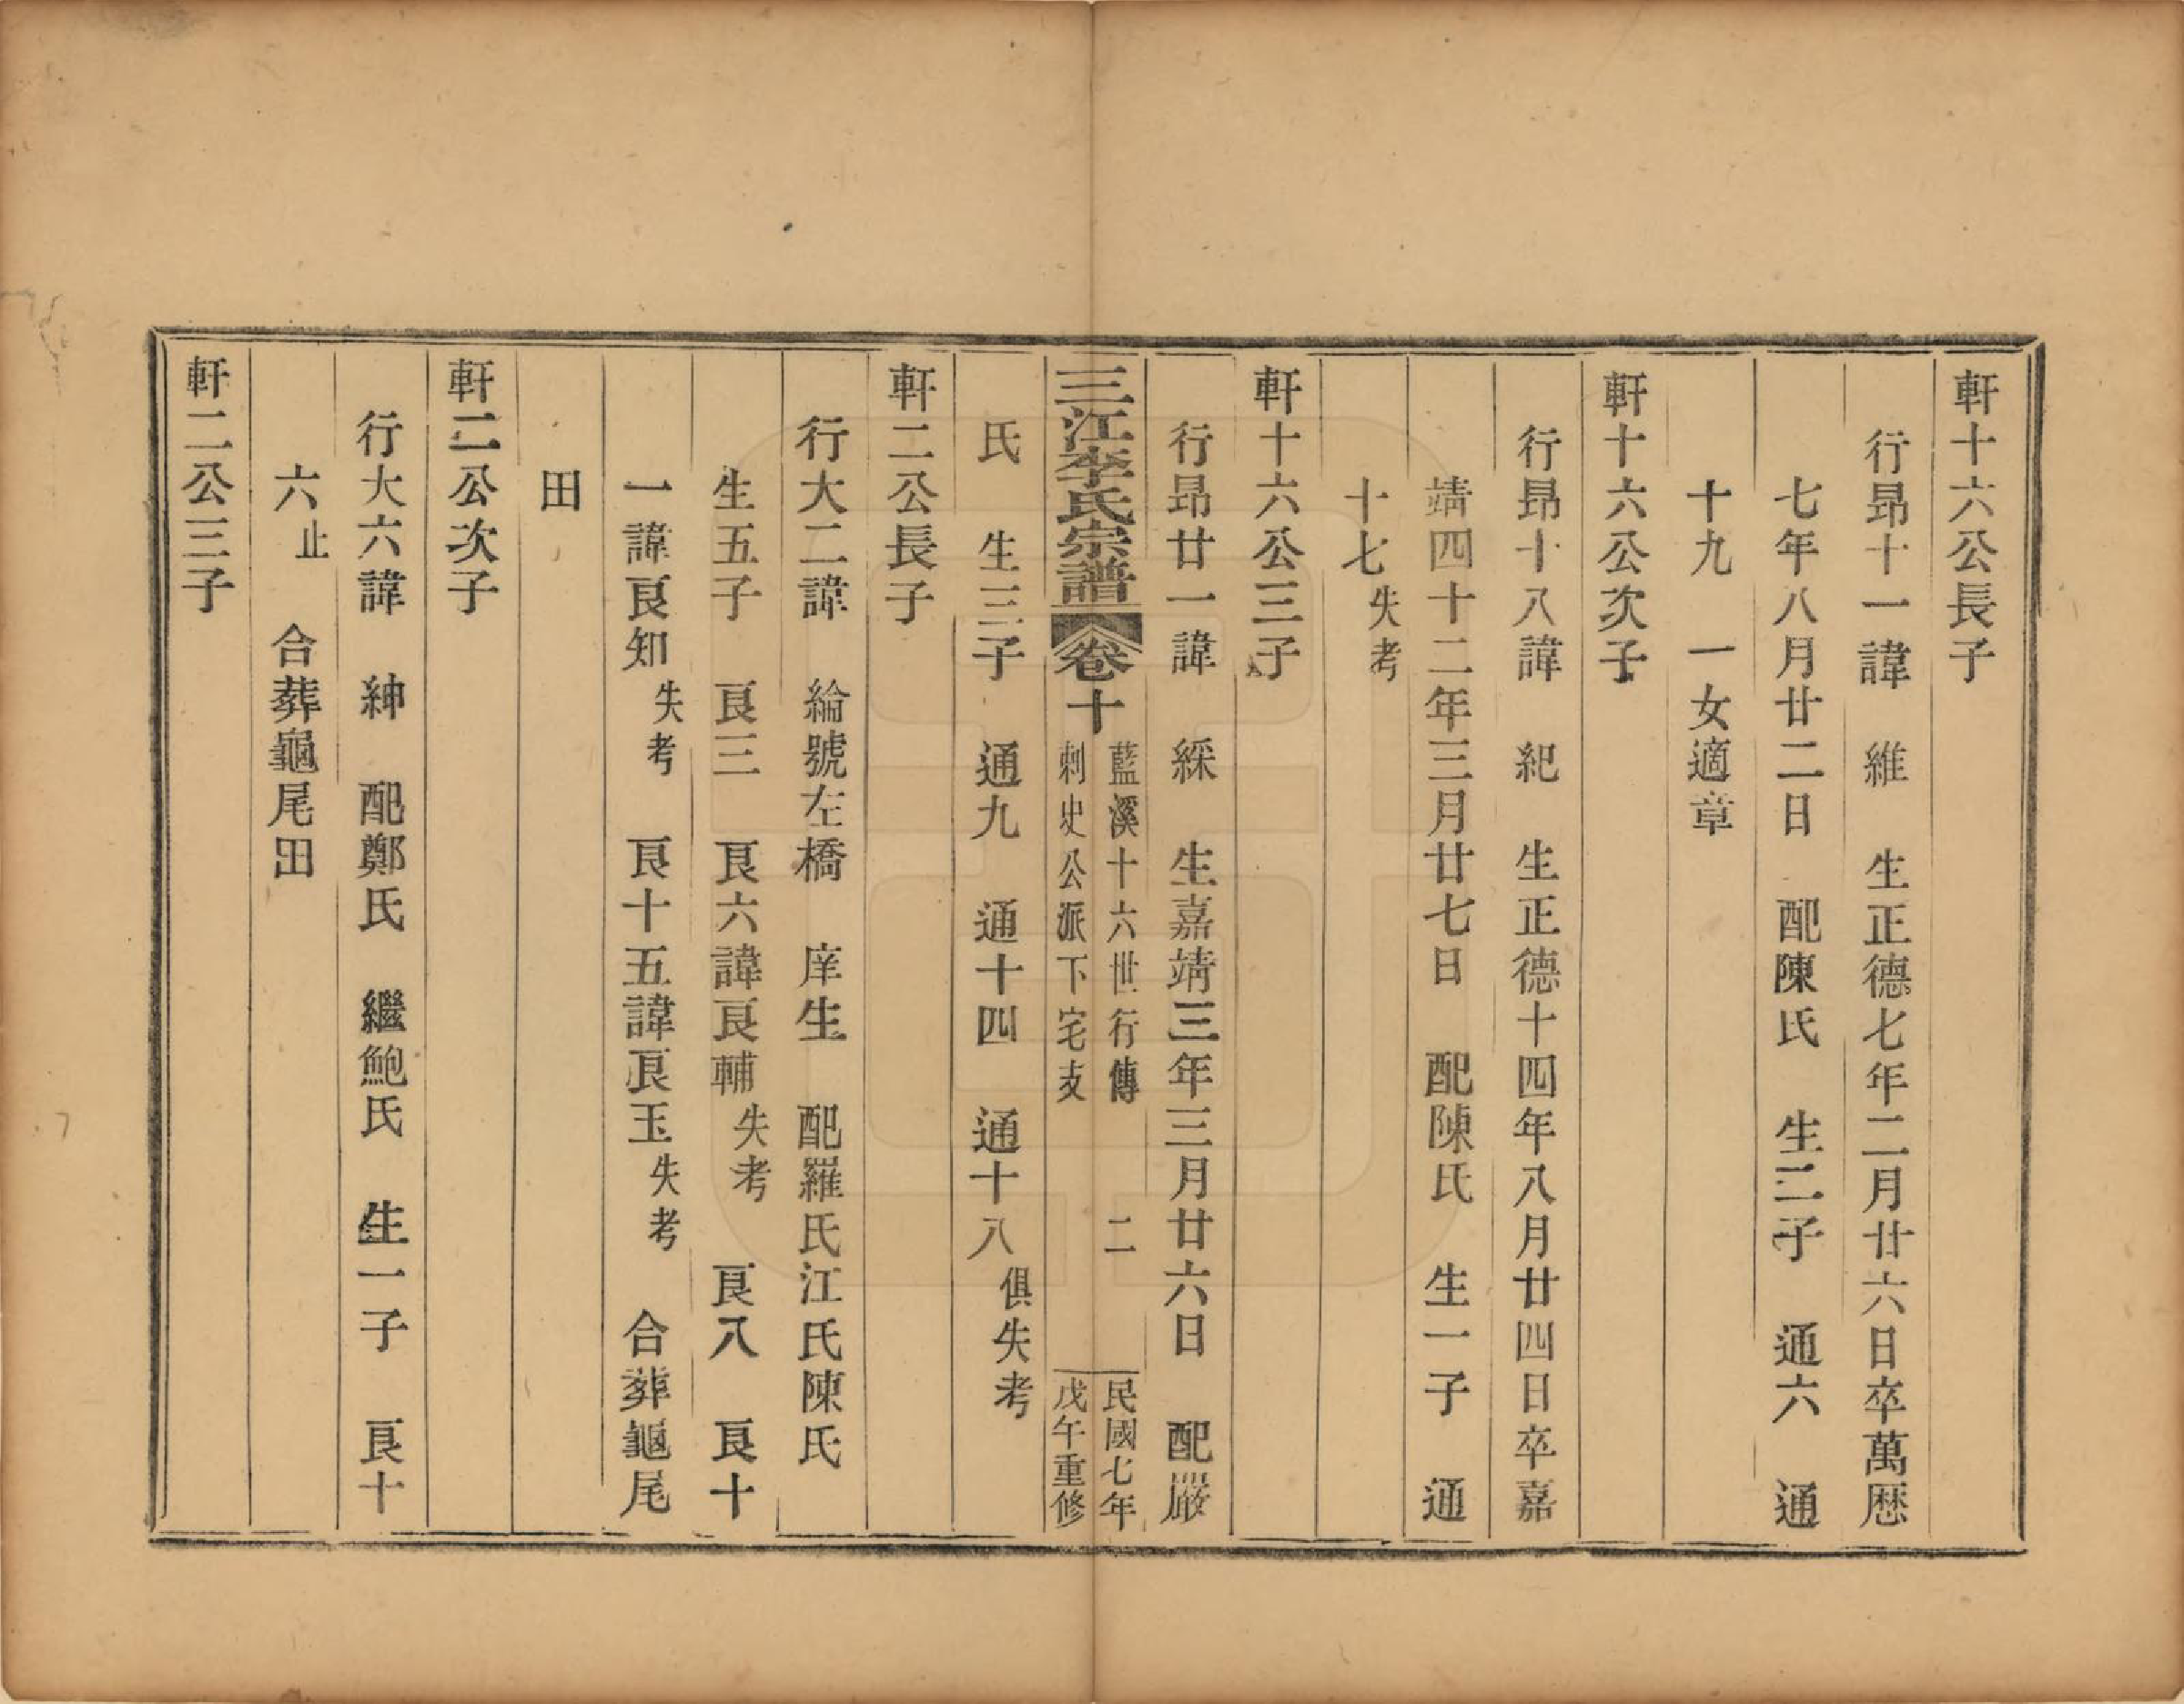 軒十六公長子
行昻十一諱 維 生正德七年二月廿六日卒萬厯
七年八月廿二日 配陳氏 生二子 通六 通
十九 一女適章
軒十六公次子
行昻十八諱 紀 生正德十四年八月廿四日卒嘉
靖四十二年三月廿七日 配陳氏 生一子 通
十七失考
軒十六公三子
行昻廿一諱 綵 生嘉靖三年三月廿六日 配嚴
三江李氏宗譜 卷十
藍溪十六世行傳 二
刺史公派下宅支
民國七年
戊午重修
氏 生三子 通九 通十四 通十八俱失考
軒二公長子
行大二諱 綸號左橋 庠生 配羅氏江氏陳氏
生五子 良三 良六諱良輔失考 良八 良十
一諱良知失考 良十五諱良玉失考 合葬龜尾
田
軒二公次子
行大六諱 紳 配鄭氏 繼鮑氏 生一子 良十
六止 合葬龜尾田
軒二公三子